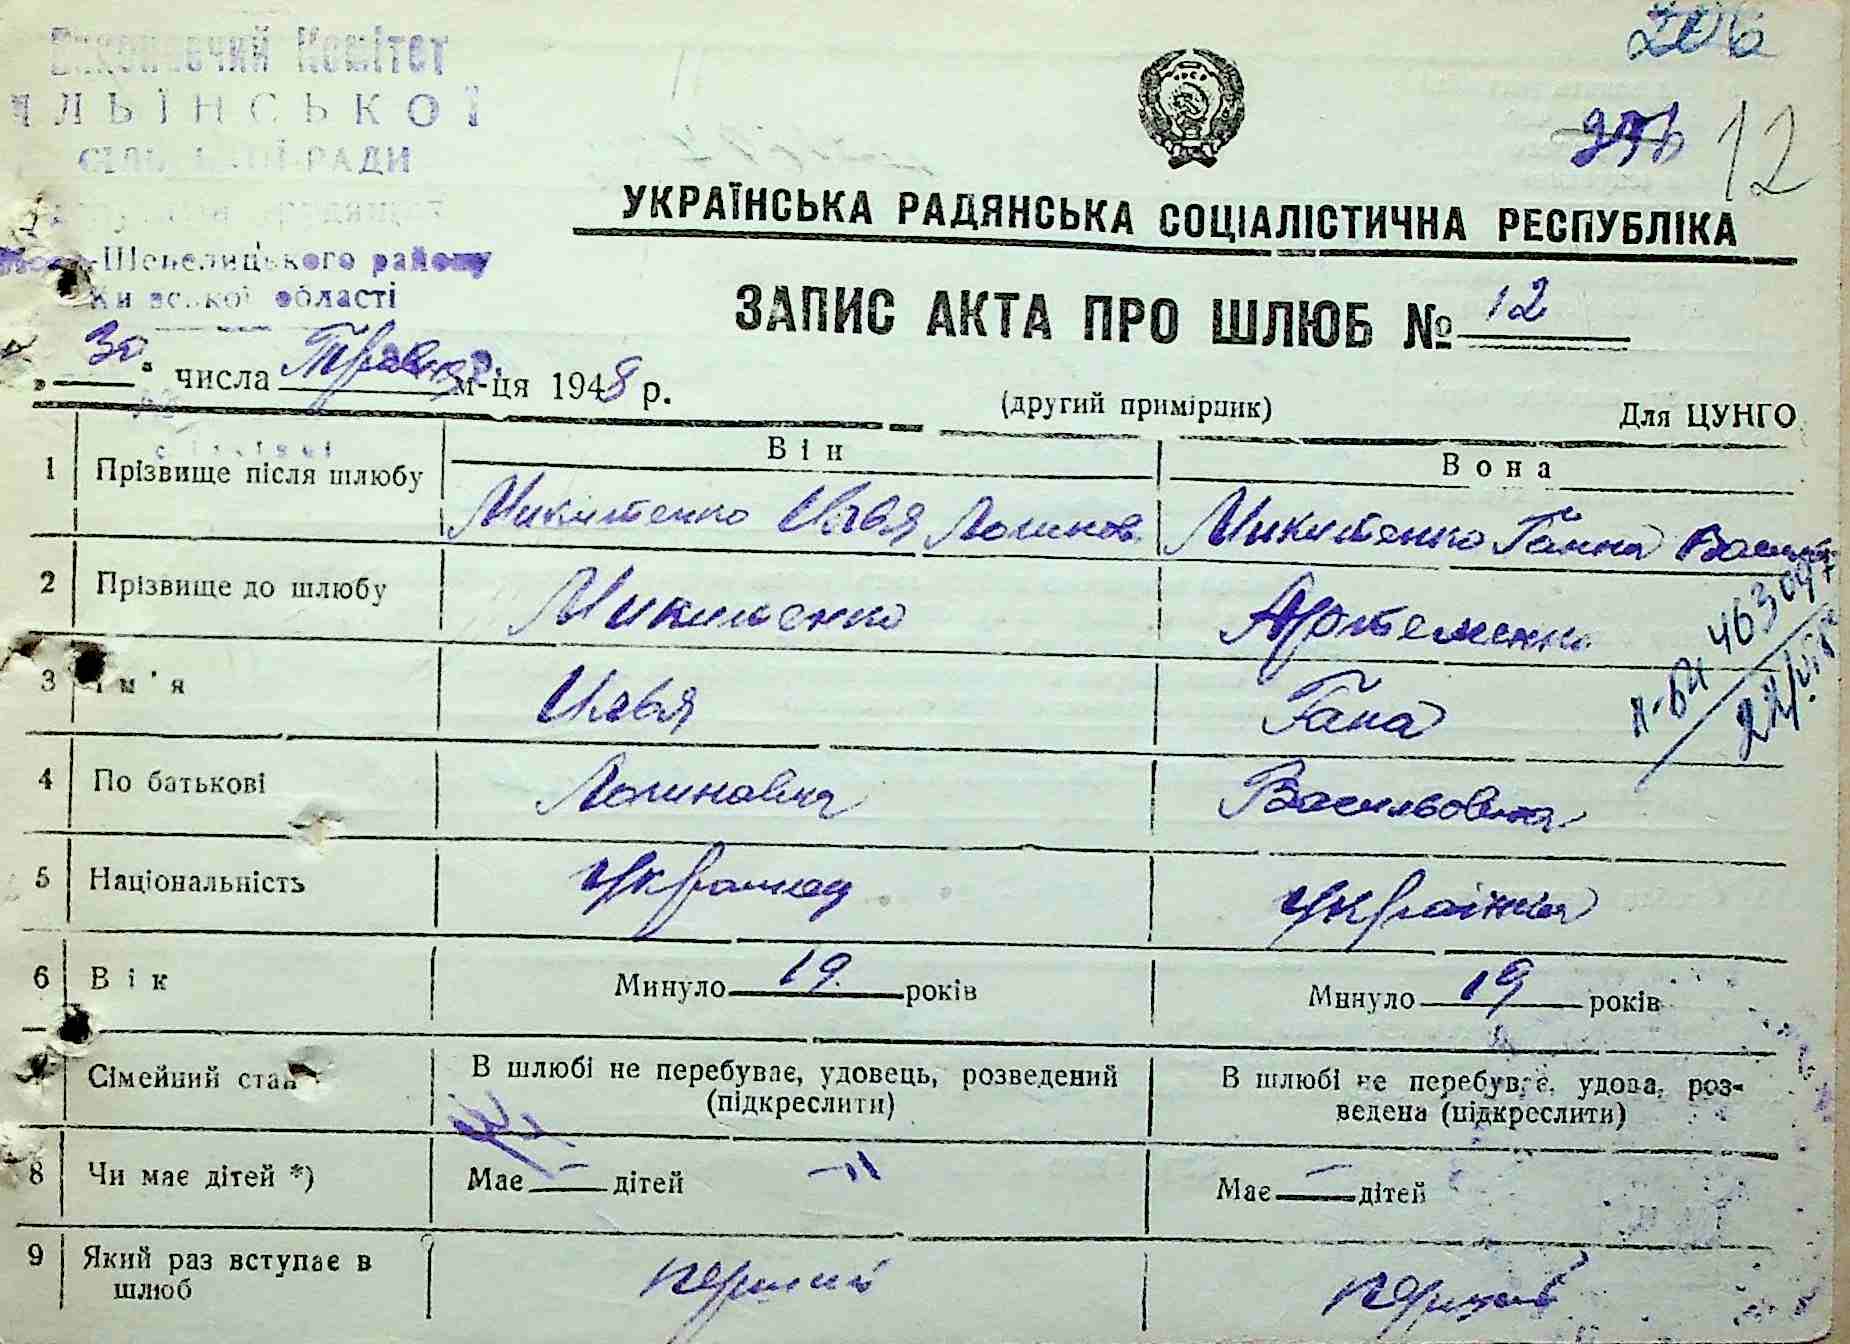 Виконавчий Комітет
ІЛЬЇНСЬКОЇ
СІЛЬСЬКОЇ РАДИ
-Шепелицького району
Київської області
206
12
УКРАЇНСЬКА РАДЯНСЬКА СОЦІАЛІСТИЧНА РЕСПУБЛІКА
ЗАПИС АКТА ПРО ШЛЮБ № 12
„30“ числа Травня м-ця 1948 р.
(другий примірник) Для ЦУНГО
Він Вона
1 Прізвище після шлюбу Микитенко Илья Логинов. Микитенко Ганна Васильев
2 Прізвище до шлюбу Микитенко Артеменко
3 Ім'я Илья Гана
4 По батькові Логинович Васильовна
5 Національність Українец Українка
6 Вік Минуло 19 років Минуло 19 років
Сімейний стан В шлюбі не перебуває, удовець, розведений В шлюбі не перебуває, удова, роз-
(підкреслити) ведена (підкреслити)
8 Чи має дітей *) Має — дітей -"- Має — дітей
9 Який раз вступає в перший перший
шлюб